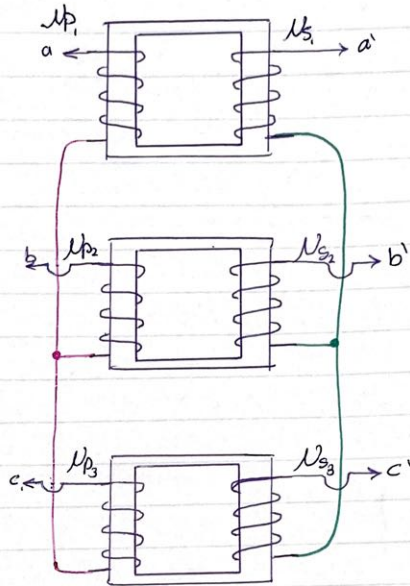 Np₁ Ns₁
a a'
b Np₂ Ns₂ b'
c Np₃ Ns₃ c'